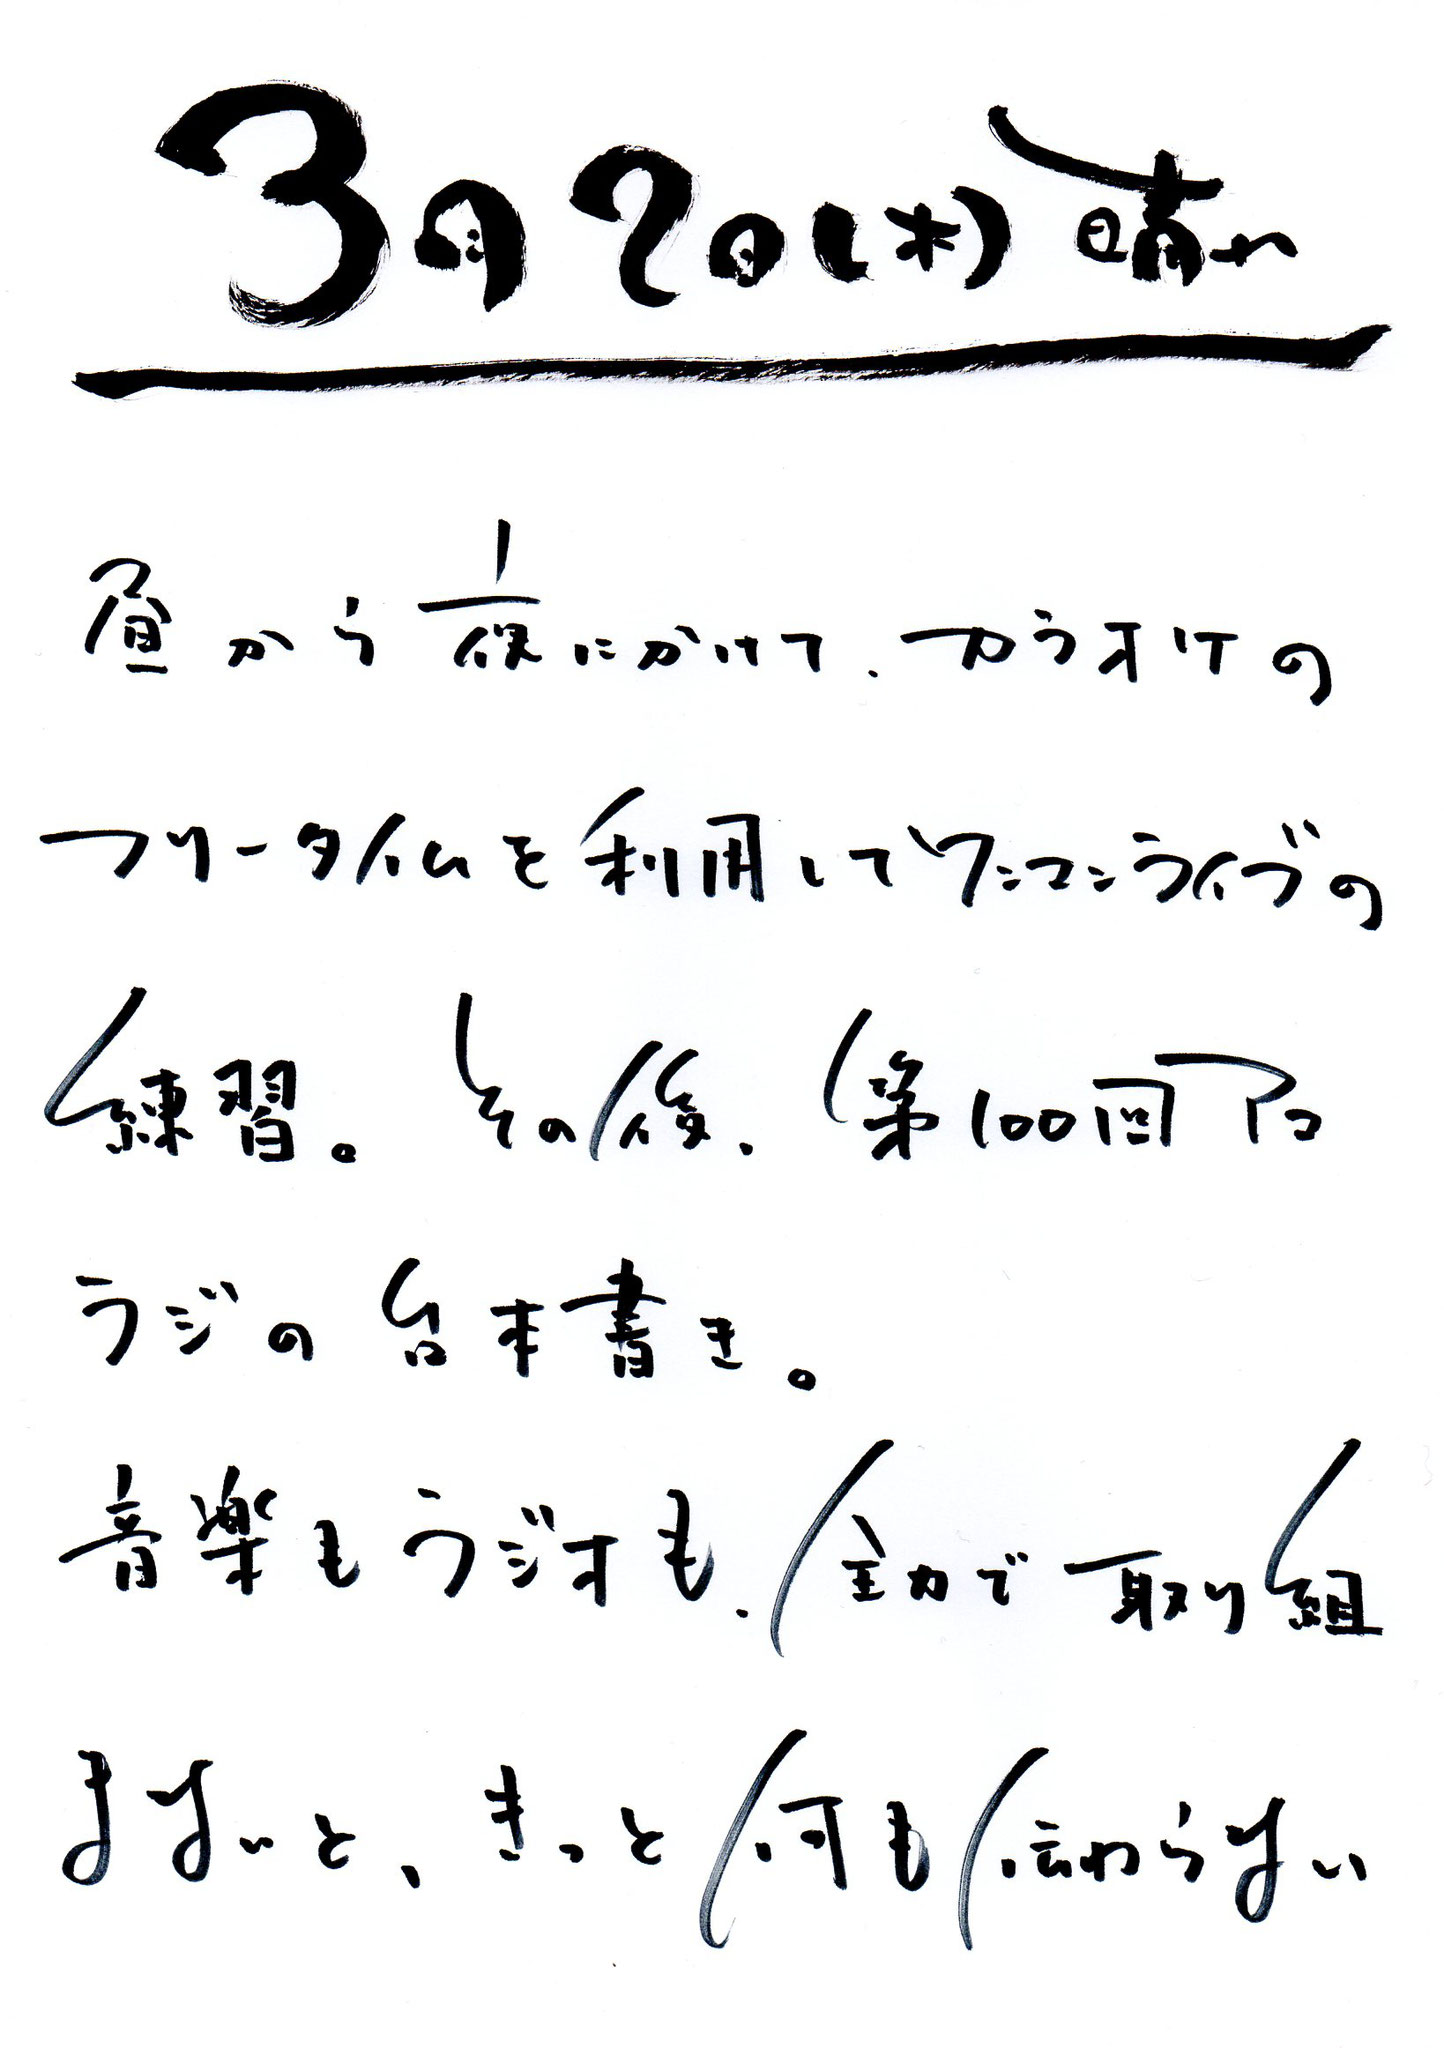 3月2日(木) 晴れ
昼から夜にかけて、カラオケの
フリータイムを利用してワンマンライブの
練習。その後、第100回アコ
ラジの台本書き。
音楽もラジオも、全力で取り組
まないと、きっと何も伝わらない